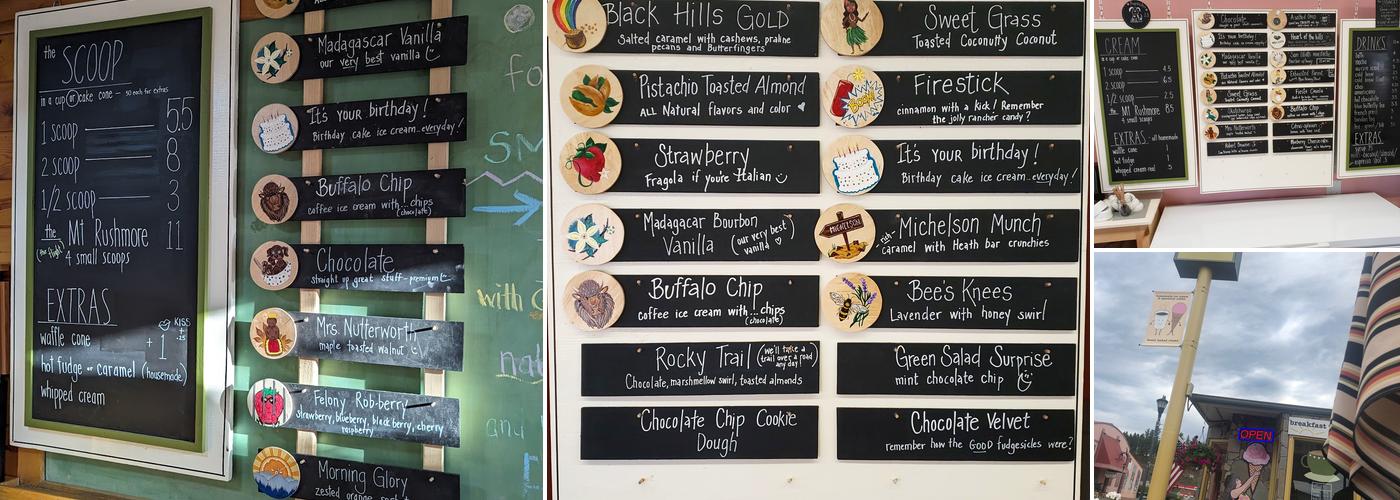 the
SCOOP
in a cup (or) cake cone - 50 each for extras
1 scoop 5.5
2 scoop 8
1/2 scoop 3
the Mt Rushmore 11
4 small scoops
EXTRAS
waffle cone
KISS
+ 1
hot fudge or caramel (housemade)
whipped cream
Madagascar Vanilla
our very best vanilla
It's your birthday!
Birthday cake ice cream..everyday!
Buffalo Chip
coffee ice cream with...chips
(chocolate)
Chocolate
straight up great stuff-premium
Mrs. Nutterworth
maple toasted walnut
Felony Rob-berry
Strawberry, blueberry, black berry, cherry
raspberry
Morning Glory
zested orange
with
Black Hills GOLD
Salted caramel with cashews, praline
pecans and Butterfingers
Pistachio Toasted Almond
ALL Natural flavors and color
Strawberry
Fragola if you're Italian
Madagacar Bourbon
Vanilla (our very best vanilla)
Buffalo Chip
coffee ice cream with...chips
(chocolate)
Rocky Trail (we'll take a trail over a road any day!)
Chocolate, marshmellow swirl, toasted almonds
Chocolate Chip Cookie
Dough
Sweet Grass
Toasted Coconutty Coconut
Firestick
cinnamon with a kick! Remember
the jolly rancher candy?
BOOM!
It's your birthday!
Birthday cake ice cream..everyday!
MICHELSON
Michelson Munch
-rich- caramel with Heath bar crunchies
Bee's Knees
Lavender with honey swirl
Green Salad Surprise
mint chocolate chip
Chocolate Velvet
remember how the GOOD fudgesicles were?
CREAM
in a cup or cake cone
1 scoop 4.5
2 scoop 6.5
1/2 scoop 2.5
the Mt Rushmore 8.5
4 small scoops
EXTRAS - all homemade
waffle cone 1
hot fudge 1
whipped cream-real
Chocolate
It's your birthday!
Madagascar Vanilla
Pistachio Toasted Almond
Sweet Grass
Mrs Nutterworth
Heart of the hills
Buffalo Chip
Blueberry Cheesecake
DRINKS
EXTRAS
OPEN
breakfast